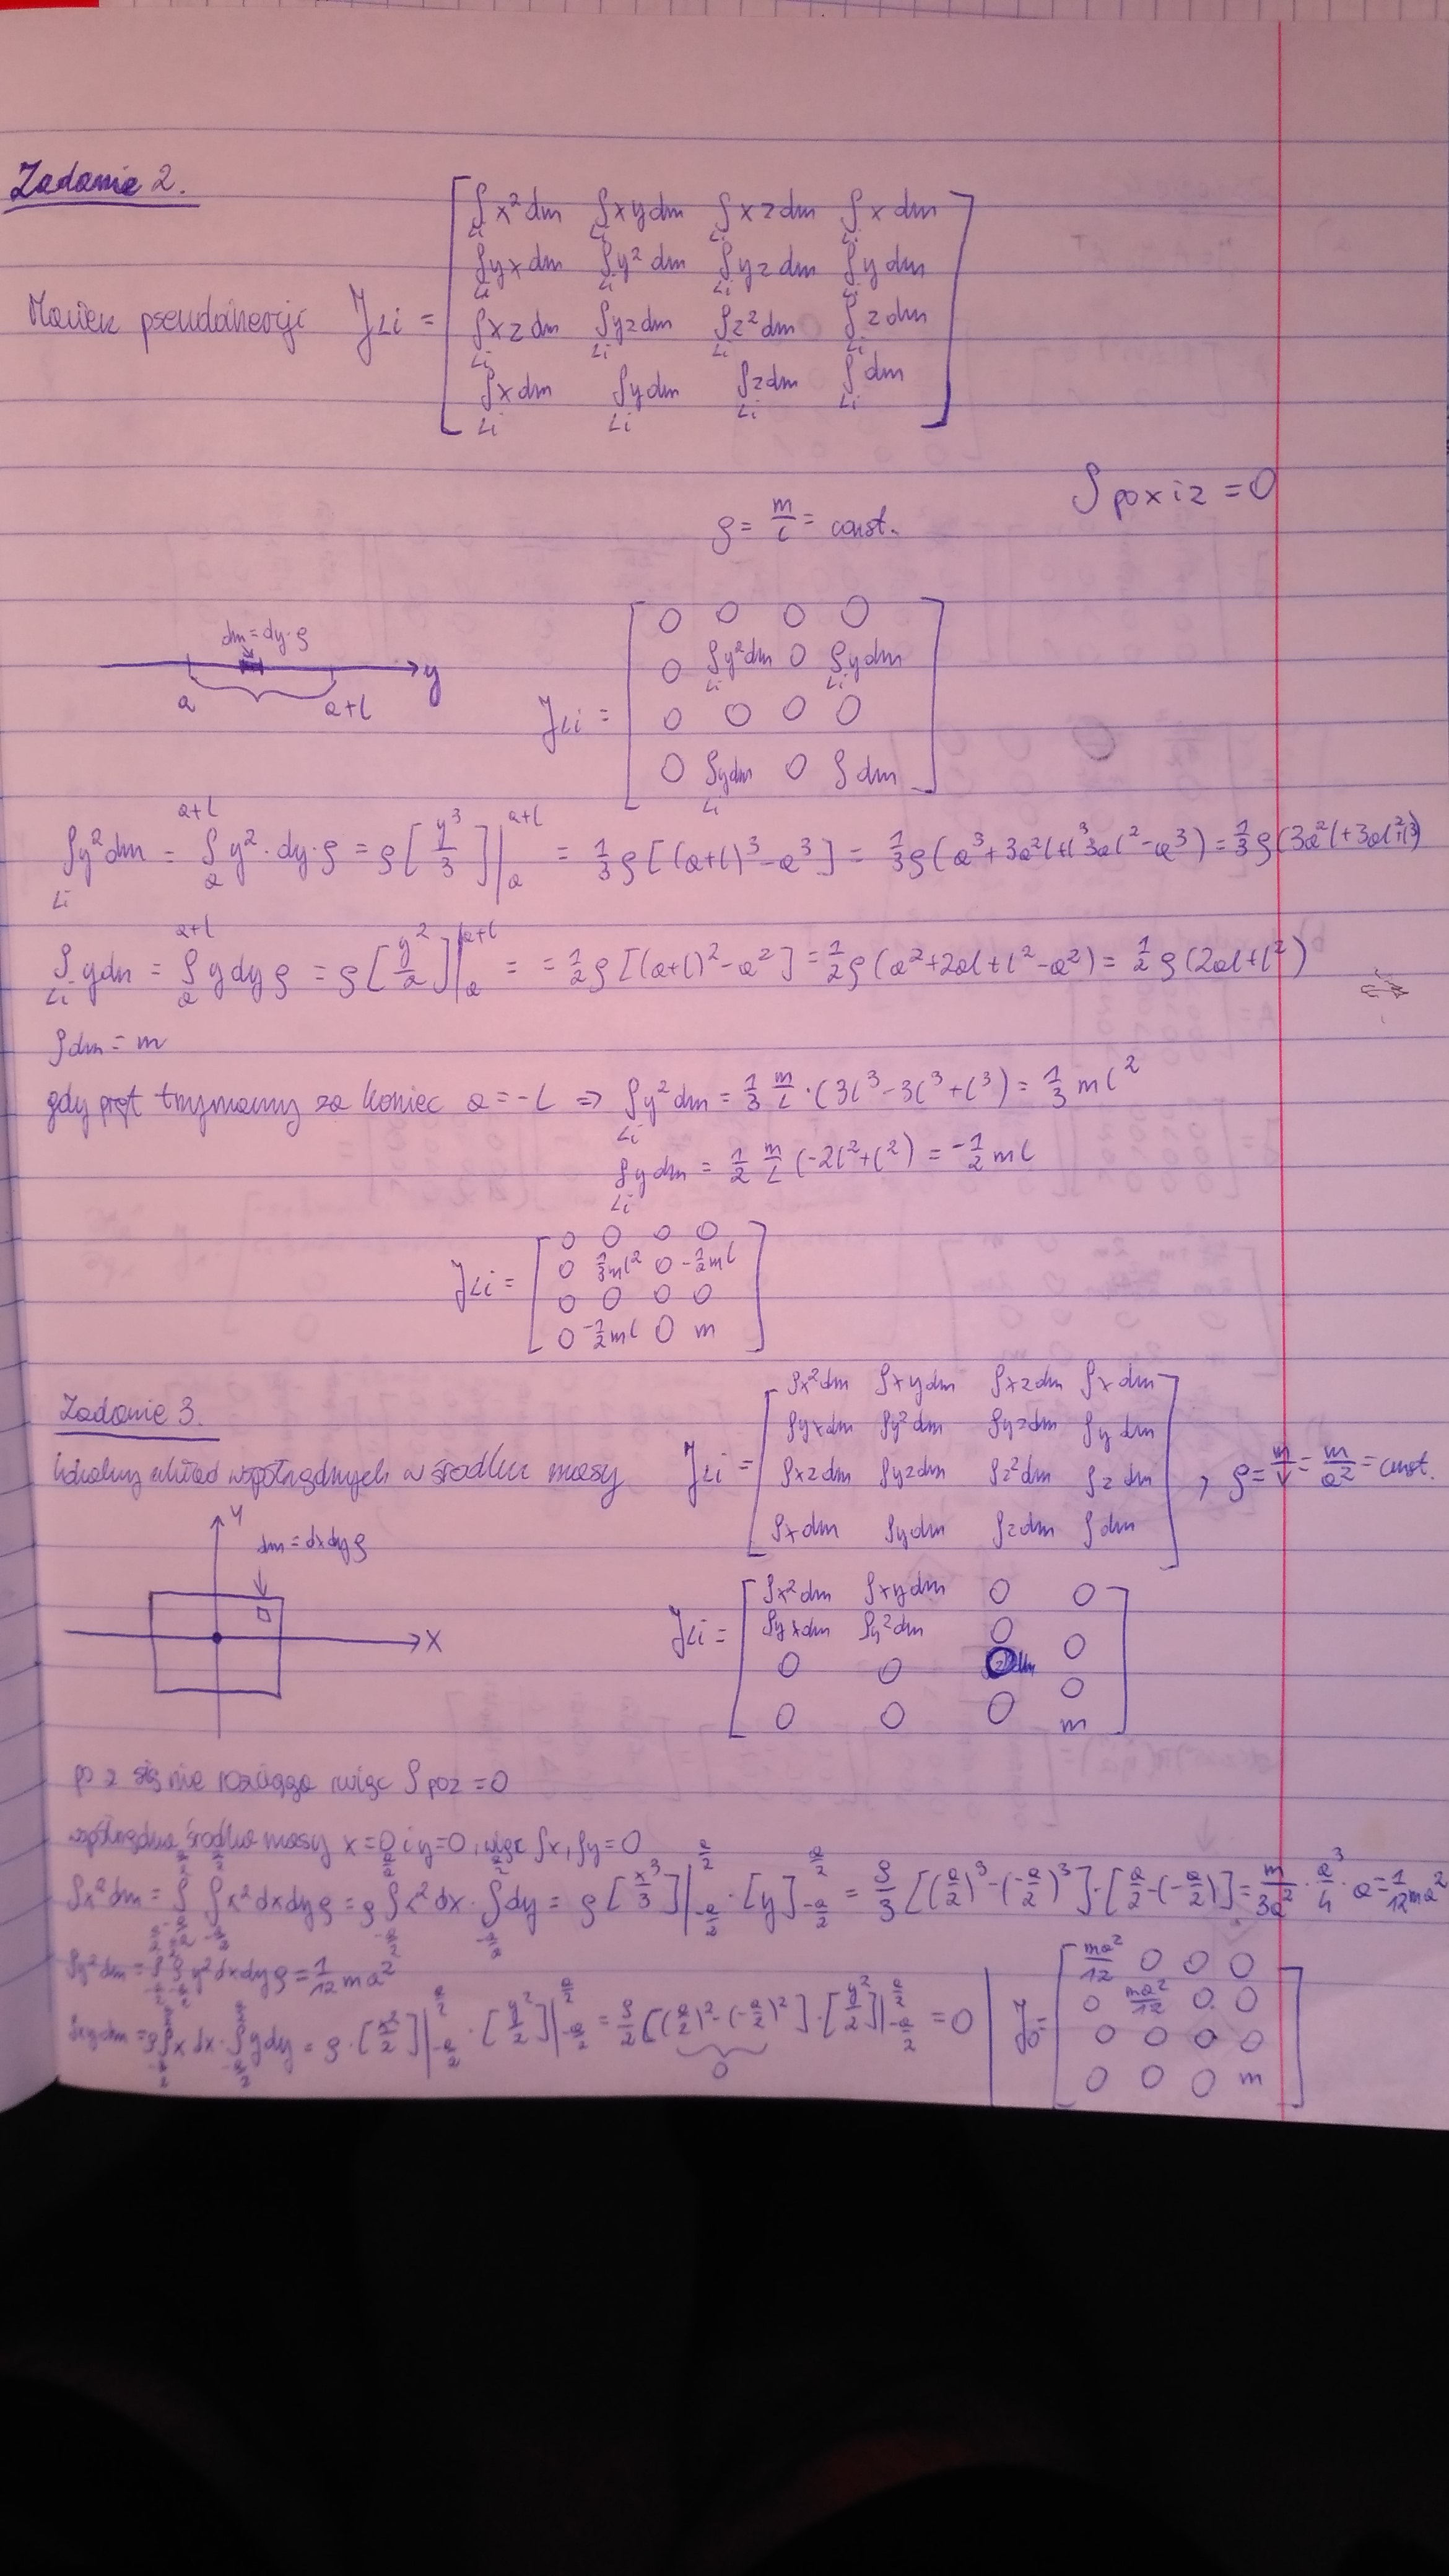 Zadanie 2.
Macierz pseudoinercji J_Li = [ ∫_Li x² dm  ∫_Li xy dm  ∫_Li xz dm  ∫_Li x dm
∫_Li yx dm  ∫_Li y² dm  ∫_Li yz dm  ∫_Li y dm
∫_Li xz dm  ∫_Li yz dm  ∫_Li z² dm  ∫_Li z dm
∫_Li x dm  ∫_Li y dm  ∫_Li z dm  ∫_Li dm ]
∫ po x i z = 0
ρ = m/l = const.
dm = dy·ρ
a  a+l  y
J_Li = [ 0 0 0 0
0 ∫_Li y² dm 0 ∫_Li y dm
0 0 0 0
0 ∫_Li y dm 0 ∫ dm ]
∫_Li y² dm = ∫_a^{a+l} y²·dy·ρ = ρ[y³/3]|_a^{a+l} = 1/3 ρ[(a+l)³-a³] = 1/3 ρ(a³+3a²l+l³ 3al²-a³) = 1/3 ρ(3a²l+3al²+l³)
∫_Li y dm = ∫_a^{a+l} y dy ρ = ρ[y²/2]|_a^{a+l} = = 1/2 ρ[(a+l)²-a²] = 1/2 ρ(a²+2al+l²-a²) = 1/2 ρ(2al+l²)
∫ dm = m
gdy pręt trzymamy za koniec a = -l ⇒ ∫_Li y² dm = 1/3 m/l ·(3l³-3l³+l³) = 1/3 ml²
∫_Li y dm = 1/2 m/l (-2l²+l²) = -1/2 ml
J_Li = [ 0 0 0 0
0 1/3 ml² 0 -1/2 ml
0 0 0 0
0 -1/2 ml 0 m ]
Zadanie 3.
lokalny układ współrzędnych w środku masy J_Li = [ ∫x² dm  ∫xy dm  ∫xz dm  ∫x dm
∫yx dm  ∫y² dm  ∫yz dm  ∫y dm
∫xz dm  ∫yz dm  ∫z² dm  ∫z dm
∫x dm  ∫y dm  ∫z dm  ∫dm ] , ρ = m/V = m/a² = const.
Y
dm = dxdyρ
X
J_Li = [ ∫x² dm  ∫xy dm  0  0
∫yx dm  ∫y² dm  0  0
0 0 0 0
0 0 0 m ]
po z się nie rozciąga więc ∫ po z = 0
współrzędne środka masy x = 0 i y = 0, więc ∫x, ∫y = 0
∫x² dm = ∫_{-a/2}^{a/2} ∫_{-a/2}^{a/2} x² dxdyρ = ρ ∫_{-a/2}^{a/2} x² dx · ∫_{-a/2}^{a/2} dy = ρ[x³/3]|_{-a/2}^{a/2} · [y]_{-a/2}^{a/2} = ρ/3 [(a/2)³-(-a/2)³]·[a/2-(-a/2)] = m/3a² · a³/4 · a = 1/12 ma²
∫y² dm = ∫_{-a/2}^{a/2} ∫_{-a/2}^{a/2} y² dxdyρ = 1/12 ma²
∫xy dm = ρ ∫_{-a/2}^{a/2} x dx · ∫_{-a/2}^{a/2} y dy = ρ·[x²/2]|_{-a/2}^{a/2} · [y²/2]|_{-a/2}^{a/2} = ρ/2 [(a/2)²-(-a/2)²]·[y²/2]|_{-a/2}^{a/2} = 0
0
J_0 = [ ma²/12 0 0 0
0 ma²/12 0 0
0 0 0 0
0 0 0 m ]